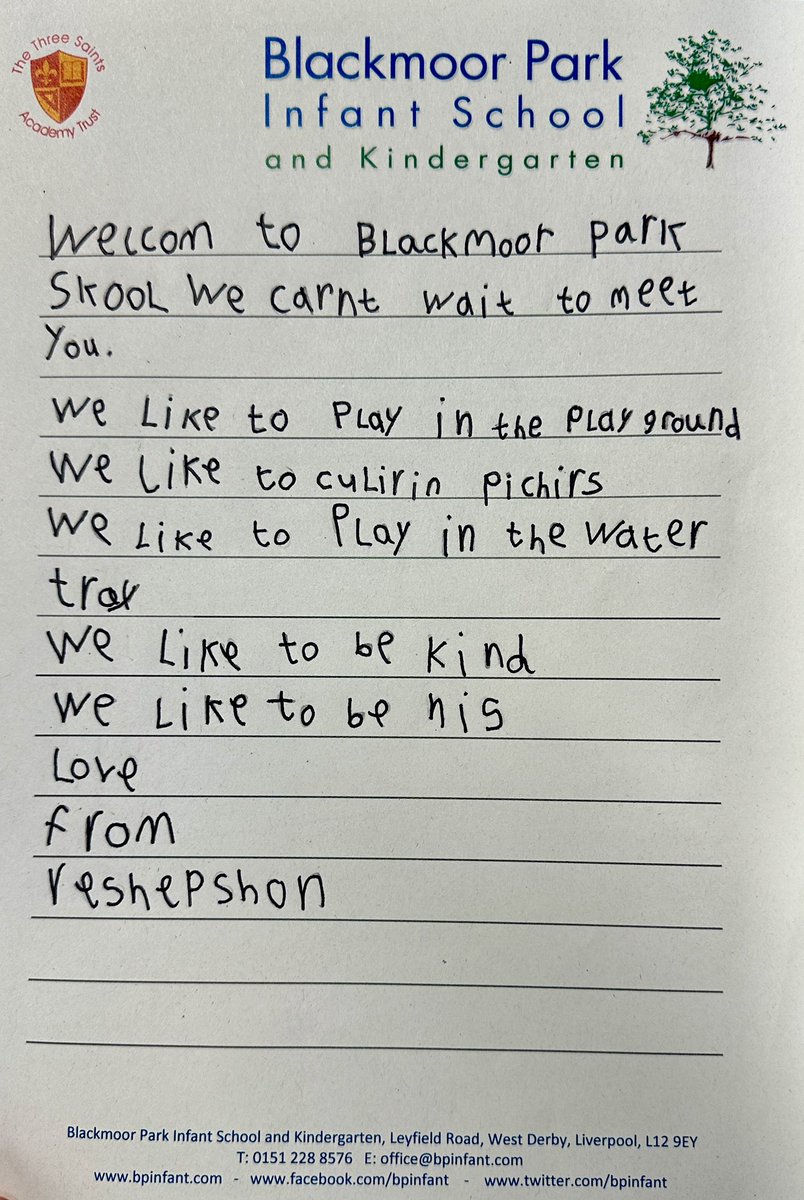 The Three Saints
Academy Trust
Blackmoor Park
Infant School
and Kindergarten
Welcom to Blackmoor park
Skool We carnt wait to meet
you.
We Like to Play in the Play ground
We Like to culirin pichirs
We Like to Play in the water
tray
We Like to be kind
We Like to be nis
Love
from
reshepshon
Blackmoor Park Infant School and Kindergarten, Leyfield Road, West Derby, Liverpool, L12 9EY
T: 0151 228 8576 E: office@bpinfant.com
www.bpinfant.com - www.facebook.com/bpinfant - www.twitter.com/bpinfant